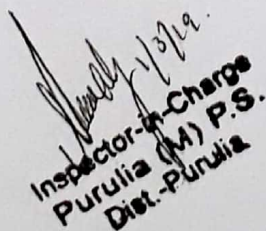 1/3/19.
Inspector-in-Charge
Purulia (M) P.S.
Dist.-Purulia